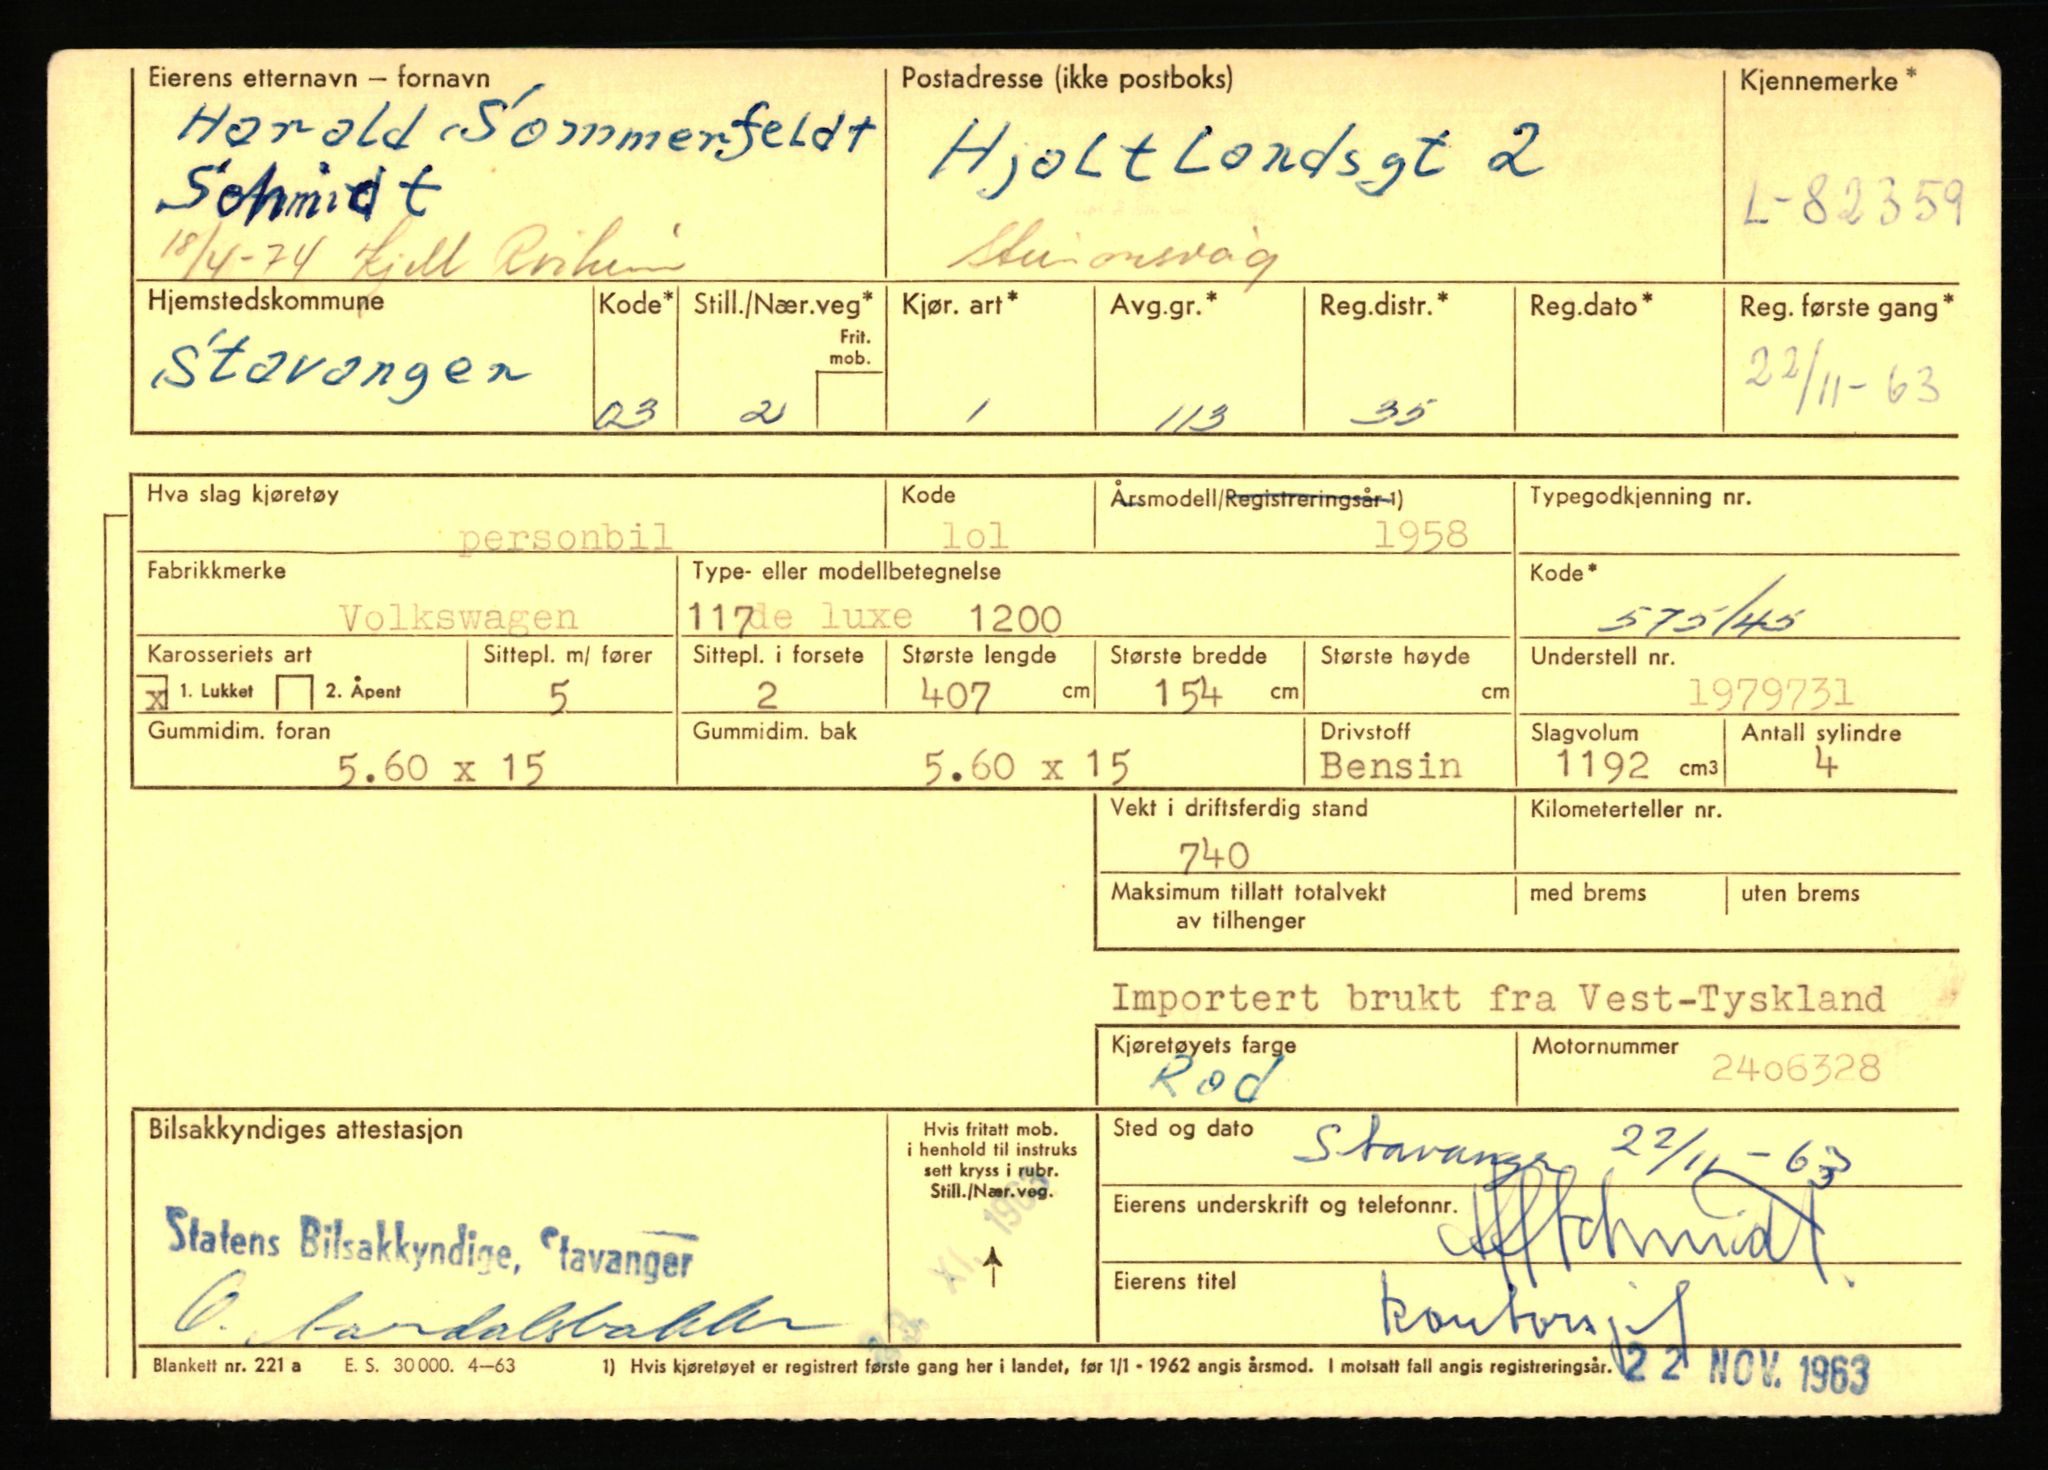 Eierens etternavn – fornavn
Harald Sommerfeldt
Schmidt
18/4-74 Kjell
Postadresse (ikke postboks)
Hjaltlandsgt 2
Kjennemerke*
L-82359
Hjemstedskommune
Stavanger
Kode*
03
Still./Nær.veg*
Frit.
mob.
2
Kjør. art*
1
Avg.gr.*
113
Reg.distr.*
35
Reg.dato*
Reg. første gang*
22/11-63
Hva slag kjøretøy
personbil
Kode
lol
Årsmodell/Registreringsår 1)
1958
Typegodkjenning nr.
Fabrikkmerke
Volkswagen
Type- eller modellbetegnelse
117 de luxe 1200
Kode*
575/45
Karosseriets art
x 1. Lukket 2. Åpent
Sittepl. m/ fører
5
Sittepl. i forsete
2
Største lengde
407 cm
Største bredde
154 cm
Største høyde
cm
Understell nr.
1979731
Gummidim. foran
5.60 x 15
Gummidim. bak
5.60 x 15
Drivstoff
Bensin
Slagvolum
1192 cm3
Antall sylindre
4
Vekt i driftsferdig stand
740
Kilometerteller nr.
Maksimum tillatt totalvekt
av tilhenger
med brems
uten brems
Importert brukt fra Vest-Tyskland
Kjøretøyets farge
Rød
Motornummer
24o6328
Bilsakkyndiges attestasjon
Statens Bilsakkyndige, Stavanger
Hvis fritatt mob.
i henhold til instruks
sett kryss i rubr.
Still./Nær.veg.
22. XI. 1963
Sted og dato
Stavanger 22/11-63
Eierens underskrift og telefonnr.
Schmidt
Eierens titel
kontorsjef
Blankett nr. 221 a E. S. 30 000. 4–63
1) Hvis kjøretøyet er registrert første gang her i landet, før 1/1 - 1962 angis årsmod. I motsatt fall angis registreringsår.
22 NOV. 1963